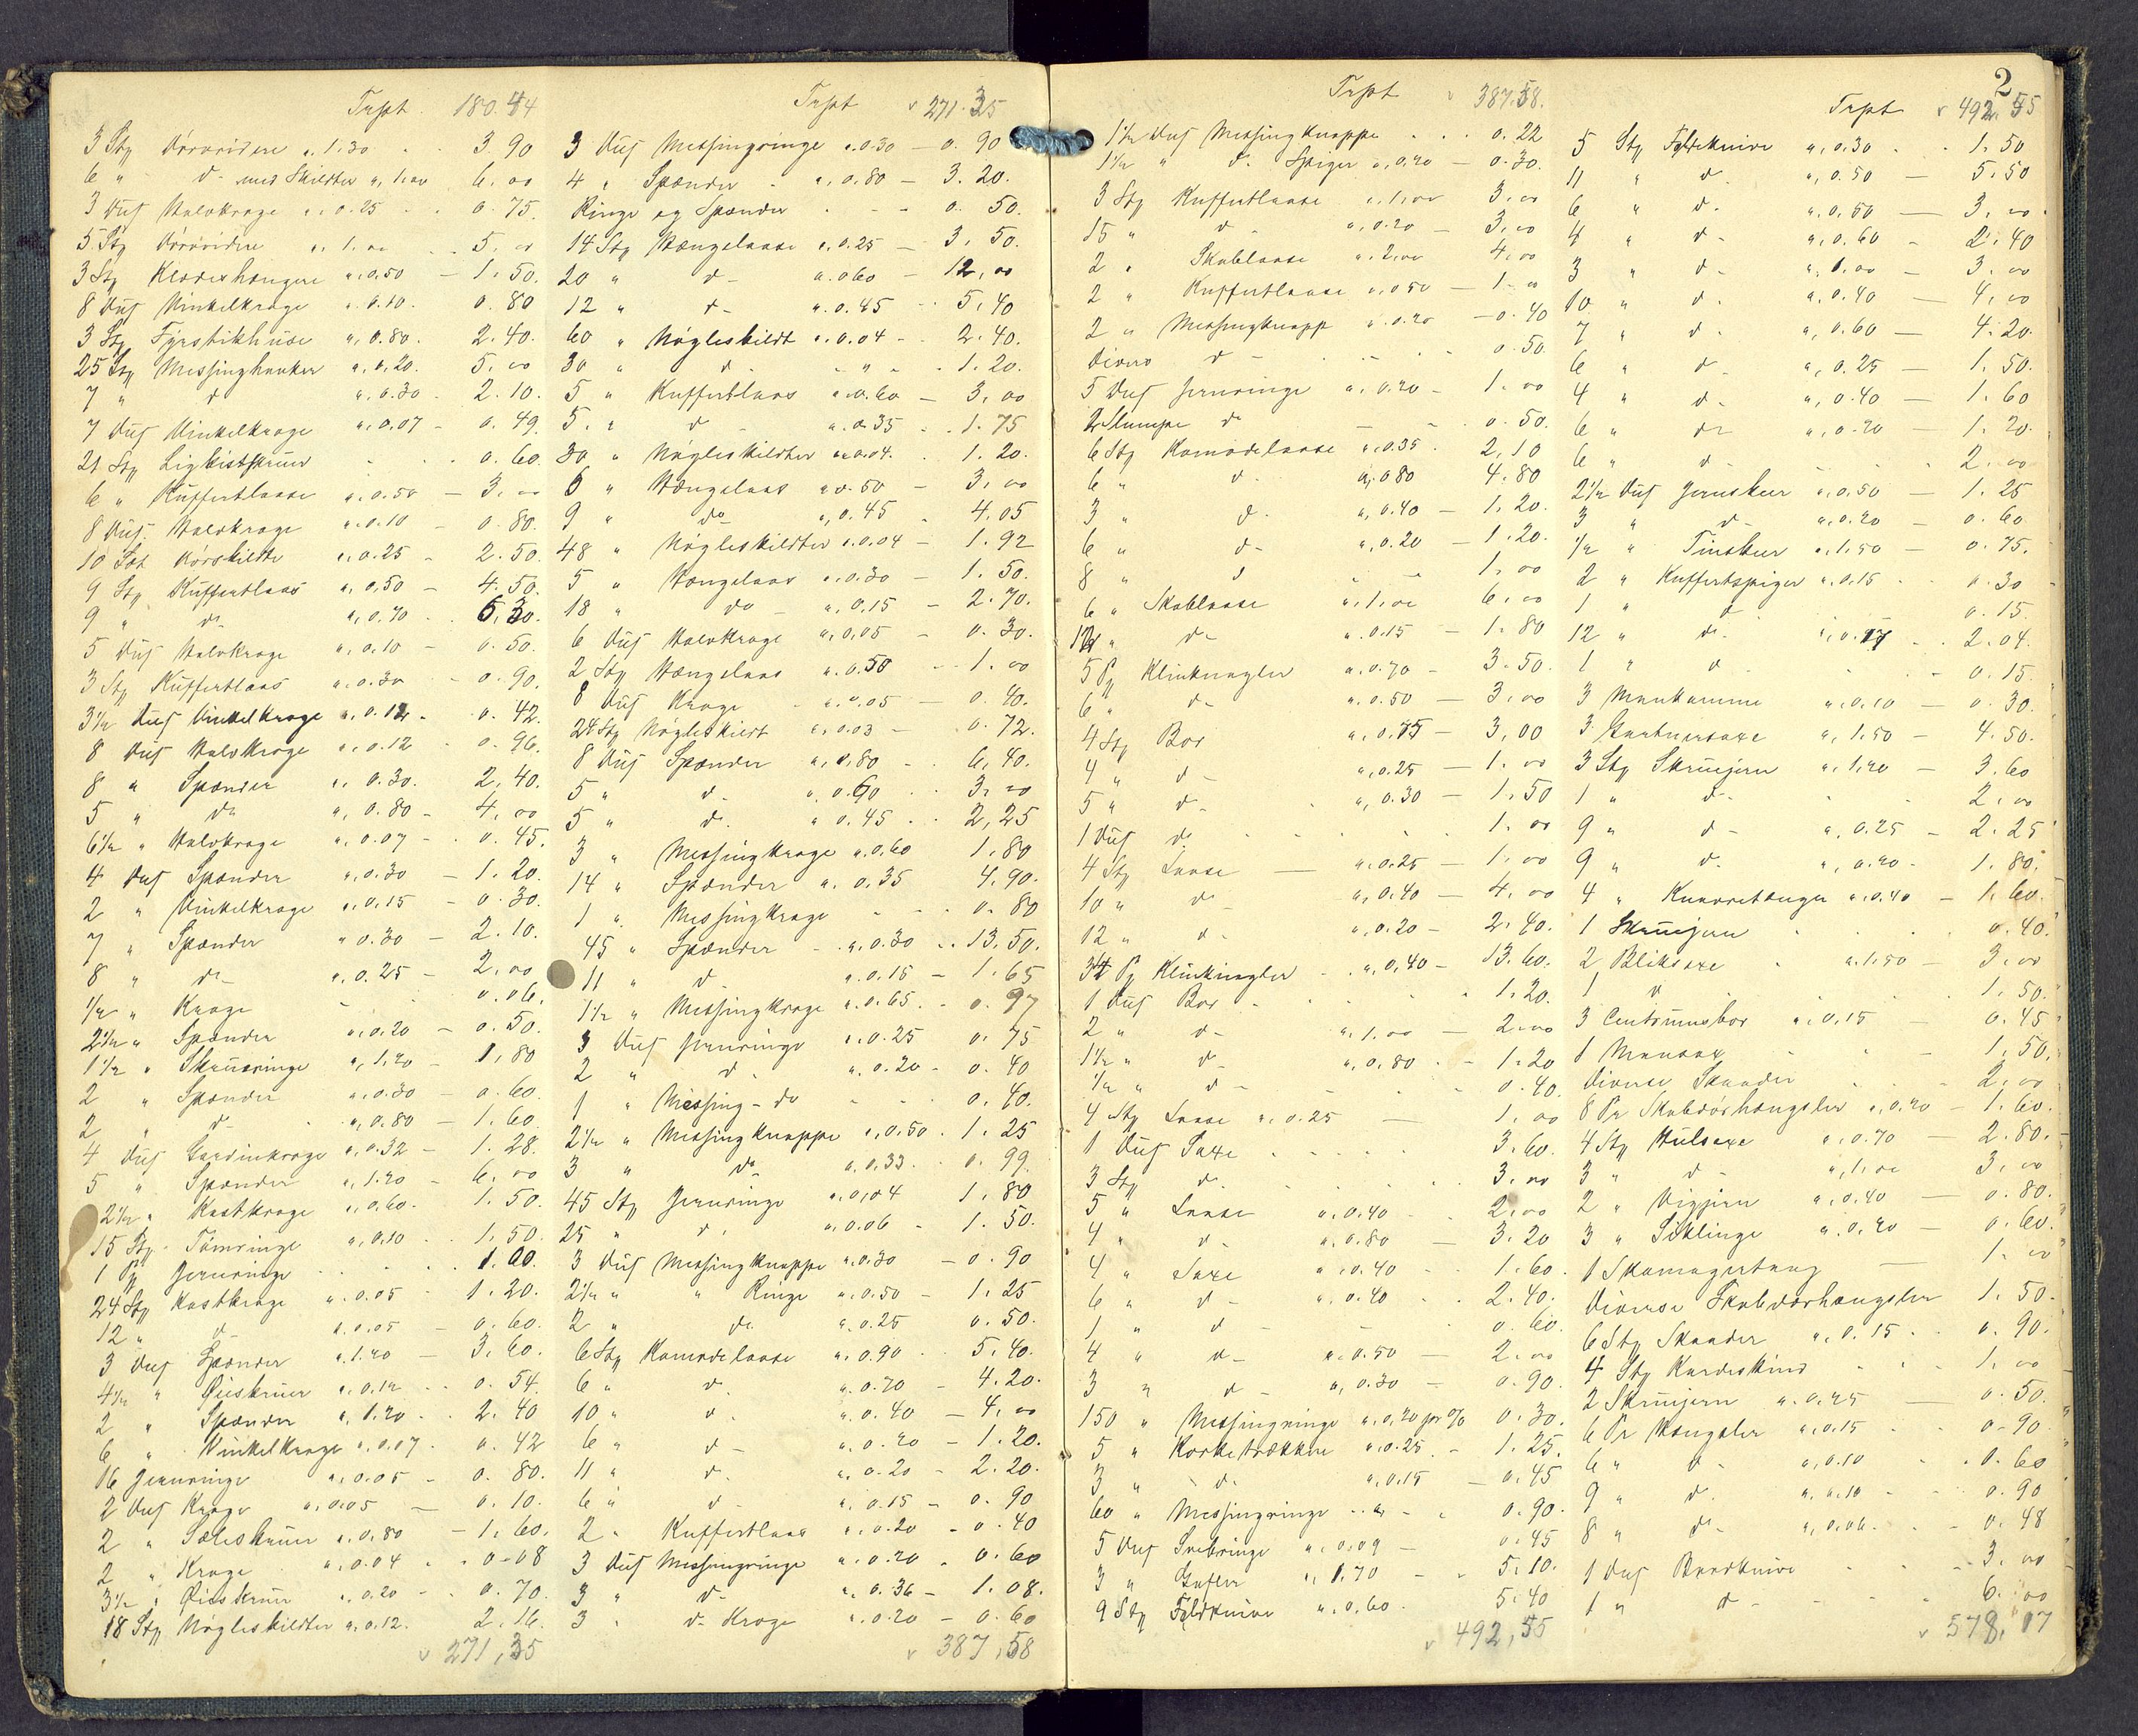 Trpt 180.44
3 Stg Dørvridere a, 1.30 3.90
6 " do med Skildter a, 1.00 6.00
3 Dus Halvkroge a, 0.25 0.75.
5 Stg Dørvridere a, 1.00 5.00
3 Stg Klædeshængere a, 0.50 – 1.50.
8 Dus Vinkelkroge a, 0.10. 0.80
3 Stg Fyrstikhuse a, 0.80. 2.40.
25 Stg Messinghanker a, 0.20. 5.00
7 " d a, 0.30. 2.10.
7 Dus Vinkelkroge a, 0.07 – 0.49.
21 Stg Ligkistskruer 0.60.
6 " Kuffertlaase a, 0.50 – 3.00
8 Dus. Halvkroge a, 0.10 – 0.80.
10 Sæt Dørskildte a, 0.25 – 2.50.
9 Stg Kuffertlaas a, 0.50 – 4.50.
9 " do a, 0.70 6.30.
5 Dus Halvkroge a, 0.10 – 0.50.
3 Stg Kuffertlaas a, 0.30 0.90.
3 1/2 Dus Vinkelkroge a, 0.12 – 0.42.
8 Dus Halvkroge a, 0.12 0.96.
8 " Spænder a, 0.30. 2.40.
5 " do a, 0.80 – 4.00
6 1/2 " Halvkroge a, 0.07 – 0.45.
4 Dus Spænder a, 0.30 – 1.20.
2 " Vinkelkroge a, 0.15 – 0.30.
7 " Spænder a 0.30 – 2.10.
8 " do a, 0.25 – 2.00
1/2 " Kroge 0.06.
2 1/2 " Spænder a, 0.20 – 0.50.
1 1/2 " Skrueringe a, 1.20 – 1.80
2 " Spænder a, 0.30 – 0.60.
2 " d a, 0.80 – 1.60.
4 Dus Gardinkroge a, 0.32 – 1.28.
5 " Spænder a, 1.20 – 6.00
2 1/2 " Kastkroge a, 0.60. 1.50.
15 Stg. Tømringe a, 0.10 1.50.
1 Pg Jernringe 1.00.
24 Stg Kastkroge a, 0.05 1.20.
12 " d a, 0.05 – 0.60.
3 Dus Spænder a, 1.20 – 3.60.
4 1/2 " Øieskruer a, 0.12 0.54.
2 " Spænder a, 1.20 2.40
6 " Vinkelkroge a, 0.07. 0.42
16 Jernringe a, 0.05 – 0.80.
2 Dus Kroge a, 0.05 – 0.10.
2 " Sæleskruer a, 0.80 – 1.60.
2 " Kroge a, 0.04 0.08
3 1/2 " Øieskruer a, 0.20 – 0.70.
18 Stg Nøgleskildter a, 0.12. 2.16.
v 271,35
Trpt v 271.35
3 Dus Messingringe a, 0.30 – 0.90
4 " Spænder a, 0.80 – 3.20.
Ringe og Spænder – 0.50.
14 Stg Hængelaase a, 0.25 – 3.50.
20 " d – a, 0.60 – 12.00
12 " d – a, 0.45 5.40
60 " Nøgleskildt a, 0.04 – 2.40.
30 " d – " 1.20.
5 " Kuffertlaas a, 0.60 – 3.00
5 " d – a, 0.35 1.75
30 " Nøgleskildter a, 0.04. 1.20.
6 " Hængelaas a, 0.50 – 3.00
9 " do a, 0.45 4.05
48 " Nøgleskildter a, 0.04 – 1.92
5 " Hængelaas a, 0.30 – 1.50.
18 " do a, 0.15 – 2.70.
6 Dus Halvkroge a, 0.05 – 0.30.
2 Stg Hængelaas a, 0.50 – 1.00
8 Dus Kroge a, 0.05 – 0.40.
24 Stg Nøgleskildt a, 0.03 – 0.72.
8 Dus Spænder a, 0.80 6.40.
5 " d. a, 0.60 3.00
5 " d. a 0.45 2,25
3 " Messingkroge a, 0.60 1.80
14 " Spænder a, 0.35 4.90.
1 " Messingkroge 0.80
45 " Spænder a, 0.30 13.50.
11 " d a, 0.15 – 1.65
1 1/2 " Messingkroge a, 0.65. 0.97
3 Dus Jernringe a, 0.25 0.75
2 " d. a, 0.20 – 0.40
1 " Messing – do 0.40.
2 1/2 " Messingknappe a, 0.50. 1.25
3 " do a, 0.33 0.99.
45 Stg Jernringe a, 0.04 1.80
25 " d. a, 0.06 – 1.50.
3 Dus Messingknappe a, 0.30 – 0.90
2 1/2 " " Ringe a, 0.50 – 1.25
2 " do a, 0.25 0.50.
6 Stg Komodelaase a, 0.90 5.40.
6 " d. a, 0.70 – 4.20.
10 " d. a, 0.40 – 4.00
6 " d – a, 0.20 – 1.20.
11 " d. a, 0.20 – 2.20.
6 " d – a, 0.15 – 0.90
2 " Kuffertlaas a, 0.20 – 0.40
3 Dus Messingringe a, 0.20 – 0.60
3 " d – a, 0.36 – 1.08.
3 " d – Kroge a, 0.20 – 0.60
v 387,58
Trpt v 387.58.
1 1/2 Dus Messingknappe 0.22
1 1/2 " d – Spiger a, 0.20 – 0.30.
3 Stg Kuffertlaase a, 1.00 3.00
15 " d – a, 0.20 – 3.00
2 " Skablaase a, 2.00 4.00
2 " Kuffertlaase a, 0.50 – 1.00
2 " Messingknapp a, 0.20 – 0.40
Divers d – 0.50.
5 Dus Jernringe a, 0.20 – 1.00
2 Slumpe do 0.50.
6 Stg Komodelaase a, 0.35. 2,10
6 " d. a, 0.80 4.80
3 " d. a, 0.40 – 1.20.
6 " d – a, 0.20 – 1.20.
8 " d 1.00
6 " Skablaase a, 1.00 6.00
12 " do a, 0.15 – 1.80
5 Pg Klinknagler a, 0.70 – 3.50.
6 " do a, 0.50 – 3.00
4 Stg Bor a, 0.75 – 3,00
4 " d – a, 0.25 – 1.00
5 " d – a, 0.30 – 1.50
1 Dus do 1.00
4 Stg Laase – a, 0.25 – 1.00
10 " do a, 0.40 – 4.00
12 " d – a, 0.20 – 2.40.
34 Pg Klinknagler a, 0.40 – 13.60.
1 Dus Bor 1.20.
2 " d – a, 1.00 – 2.00
1 1/2 " d a, 0.80 – 1.20
1/2 " d – 0.40.
4 Stg Laase a, 0.25 – 1.00
1 Dus Saxe 3.60.
3 Stg d. 3.00
5 " Laase a, 0.40 2.00
4 " d – a, 0.80 – 3.20
4 " Saxe a, 0.40 1.60
6 " d – a, 0.40 2.40.
1 " d – 0.60.
4 " d – a, 0.50 – 2.00
3 " d – a, 0.30 – 0.90.
150 " Messingringe a, 0.20 pr % 0.30.
5 " Korketrækkere a, 0.25. – 1.25.
3 " d. a, 0.15 – 0.45
60 " Messingringe 0.90.
5 Dus a, 0.09 – 0.45
3 " Gafler a, 1.70 – 5.10.
9 Stg Foldeknive a, 0.60. 5.40
v 492,55
2
Trpt v 492.55
5 Stg Foldeknive a, 0.30 1.50
11 " d. a, 0.50 – 5.50
6 " d. a, 0.50 – 3.00
4 " d – a, 0.60 – 2.40
3 " d – a, 1.00 – 3.00
10 " d. a, 0.40 – 4.00
7 " d. a, 0.60 – 4.20.
6 " d – a, 0.25 – 1.50.
4 " d – a, 0.40 – 1.60
6 " do a, 0.20 – 1.20.
6 " d – 2.00
2 1/2 Dus Jernskeer a, 0.50 – 1.25
3 " d – a, 0.20 – 0.60
1/2 " Tinskeer a, 1.50 – 0.75.
2 " Kuffertspiger a, 0.15 0.30
1 " d 0.15.
12 " do. a, 0.17 2.04.
1 " d 0.15.
3 Mankamme a, 0.10 – 0.30.
3 Gartnersaxe a, 1.50 – 4.50.
3 Stg Skruejern a, 1.20 – 3.60
1 " d – 2.00
9 " d – a, 0.25 – 2.25
9 " d. a, 0.20 – 1.80.
4 " Knivretænger a, 0.40 – 1.60.
1 Skruejern 0.40.
2 Bliksaxe a, 1.50 – 3.00
1 d 1.50.
3 Centrumsbor a, 0.15 – 0.45
1 Mansax 1.50.
Diverse Skander 2.00
8 Pr Skabdørhængsler a, 0.20 – 1.60.
4 Stg Hulsaxe a, 0.70 – 2.80.
3 " d – a, 1.00 3.00
2 " Vigjern a, 0.40 – 0.80.
3 " Siklinge a, 0.20 – 0.60.
1 Skomagertang – 1.00
Diverse Skabdørhængsler 1.50.
6 Stg Skander a, 0.15 0.90.
4 Stg Kardeskind 1.00
2 Skruejern a, 0.25 – 0.50.
6 Pr Hængsler a, 0.15 0.90
6 " d – a, 0.10 0.60
9 " d. a, 0.10 – 0.90
8 " do – a, 0.06. 0.48
1 Dus Bordknive 3.00
1 " d – 6.00
v 578.17